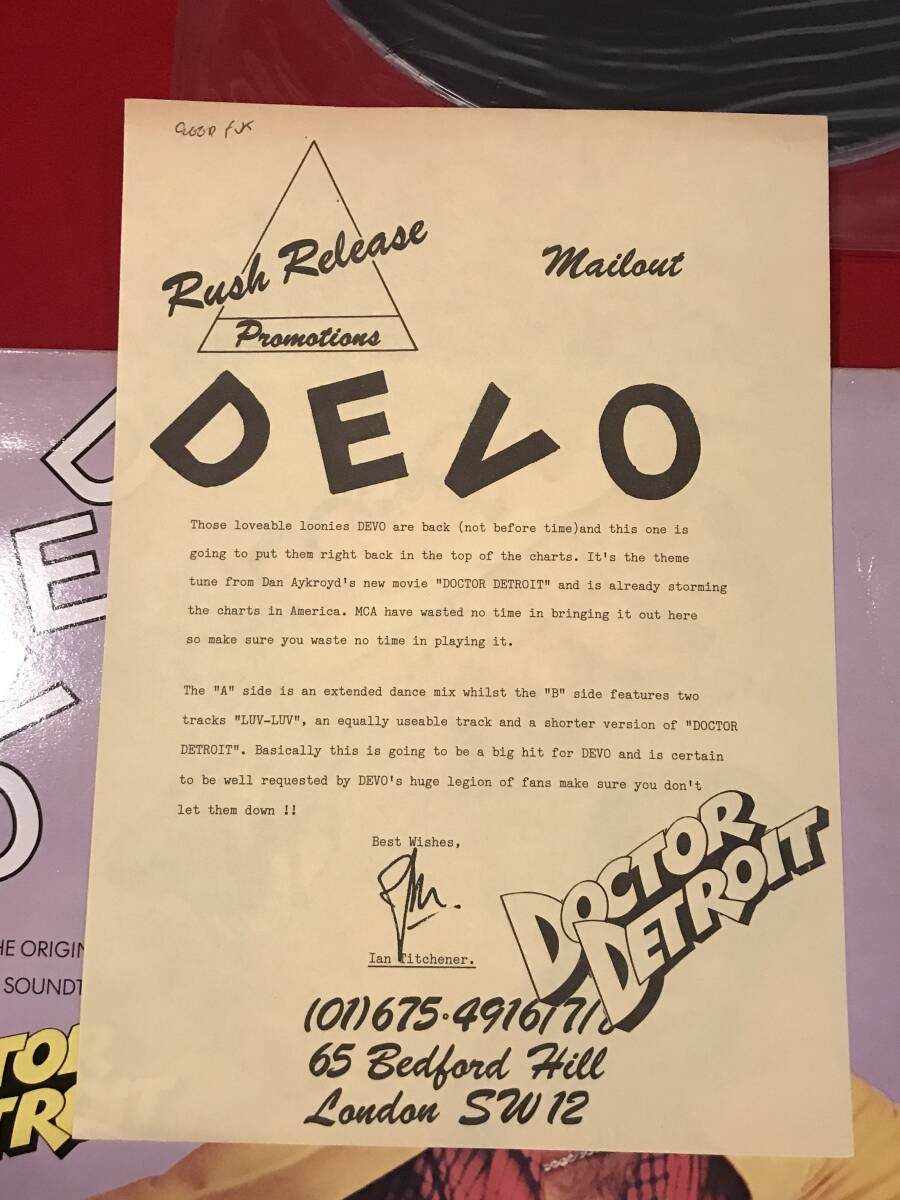 Rush Release
Promotions
Mailout
DEVO
Those loveable loonies DEVO are back (not before time)and this one is
going to put them right back in the top of the charts. It's the theme
tune from Dan Aykroyd's new movie "DOCTOR DETROIT" and is already storming
the charts in America. MCA have wasted no time in bringing it out here
so make sure you waste no time in playing it.
The "A" side is an extended dance mix whilst the "B" side features two
tracks "LUV-LUV", an equally useable track and a shorter version of "DOCTOR
DETROIT". Basically this is going to be a big hit for DEVO and is certain
to be well requested by DEVO's huge legion of fans make sure you don't
let them down !!
Best Wishes,
Ian Titchener.
DOCTOR
DETROIT
(01)675·4916/7/
65 Bedford Hill
London SW12
DEVO
HE ORIGIN
SOUNDT
TOR
TROIT